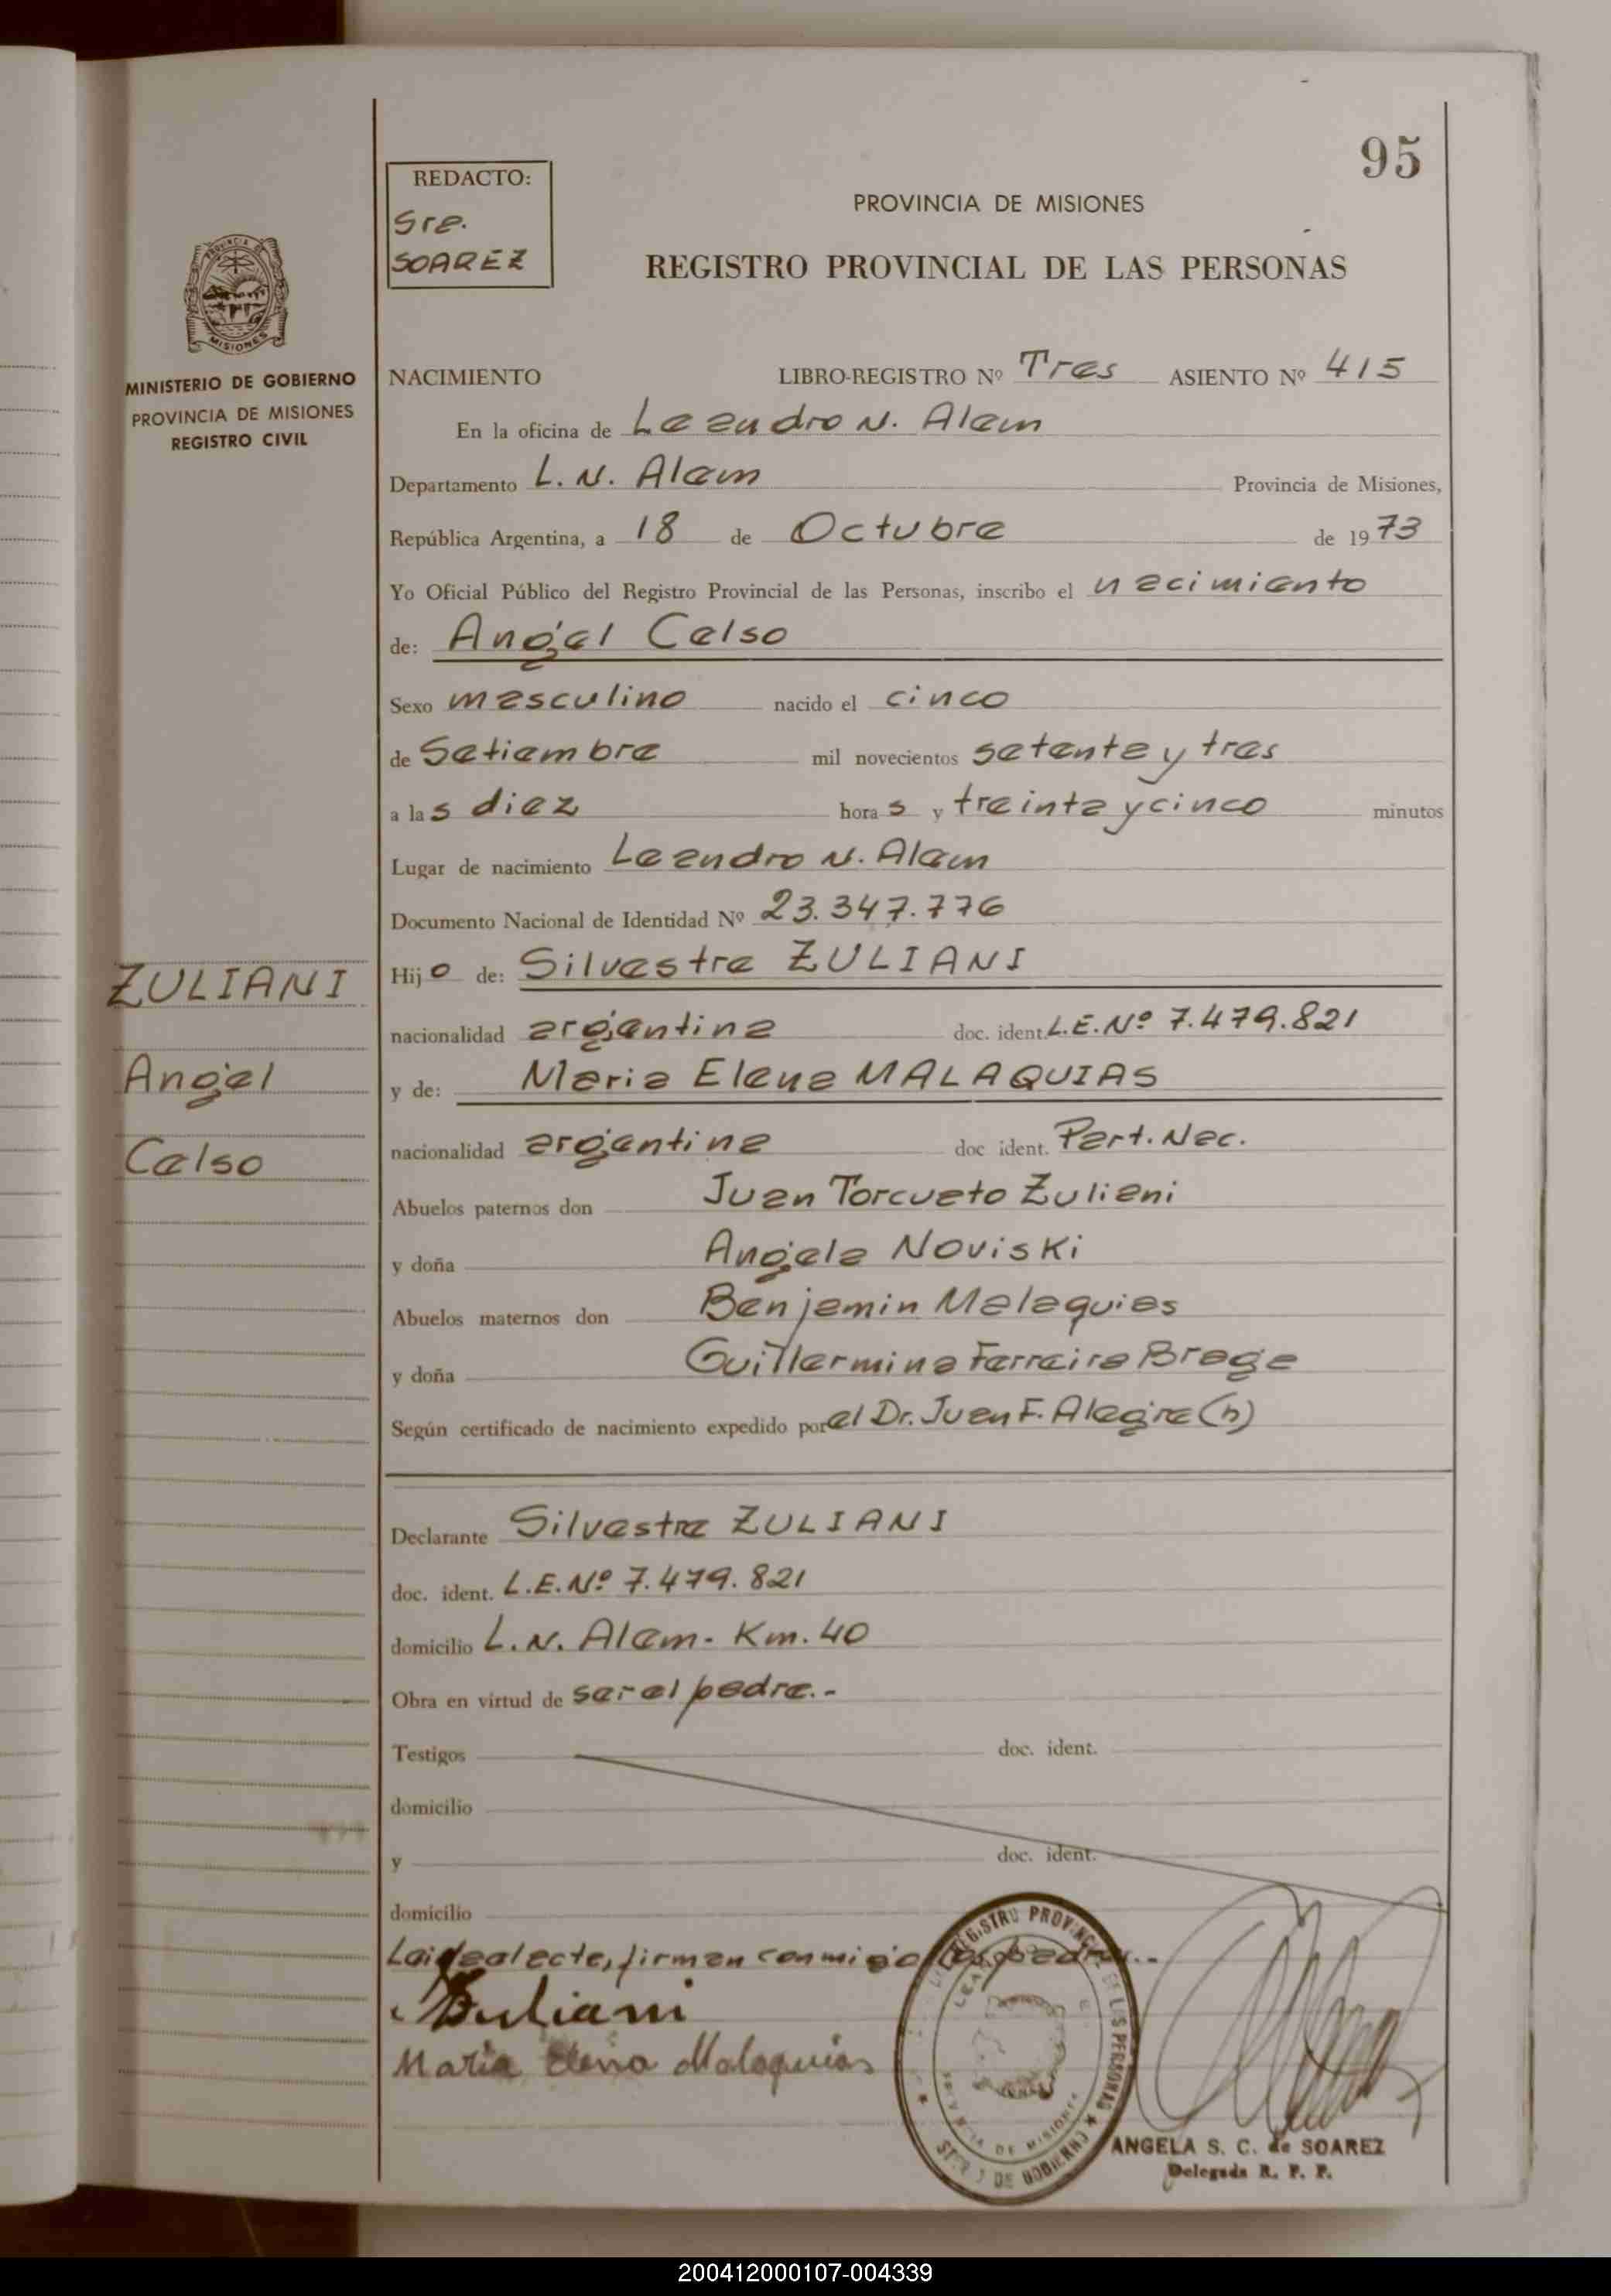 95
REDACTO:
Sra.
SOAREZ
PROVINCIA DE MISIONES
REGISTRO PROVINCIAL DE LAS PERSONAS
MINISTERIO DE GOBIERNO
PROVINCIA DE MISIONES
REGISTRO CIVIL
NACIMIENTO LIBRO-REGISTRO Nº Tres ASIENTO Nº 415
En la oficina de Leandro N. Alem
Departamento L. N. Alem Provincia de Misiones,
República Argentina, a 18 de Octubre de 1973
Yo Oficial Público del Registro Provincial de las Personas, inscribo el nacimiento
de: Angel Celso
Sexo masculino nacido el cinco
de Setiembre mil novecientos setenta y tres
a las diez horas y treinta y cinco minutos
Lugar de nacimiento Leandro N. Alem
Documento Nacional de Identidad Nº 23.347.776
ZULIANI
Hijo de: Silvestre ZULIANI
nacionalidad argentina doc. ident. L.E.Nº 7.479.821
Angel
y de: Maria Elena MALAQUIAS
Celso
nacionalidad argentina doc ident. Part. Nac.
Abuelos paternos don Juan Torcuato Zuliani
y doña Angela Noviski
Abuelos maternos don Benjamin Malaquias
y doña Guillermina Ferreira Braga
Según certificado de nacimiento expedido por el Dr. Juan F. Alegre (h)
Declarante Silvestre ZULIANI
doc. ident. L.E.Nº 7.479.821
domicilio L.N. Alem- Km. 40
Obra en virtud de ser el padre.-
Testigos doc. ident.
domicilio
y doc. ident.
domicilio
Leida el acta, firman conmigo los padres.-
Zuliani
Maria Elena Malaquias
REGISTRO PROVINCIAL DE LAS PERSONAS
PROVINCIA DE MISIONES
DE GOBIERNO
ANGELA S. C. de SOAREZ
Delegada R. P. P.
200412000107-004339